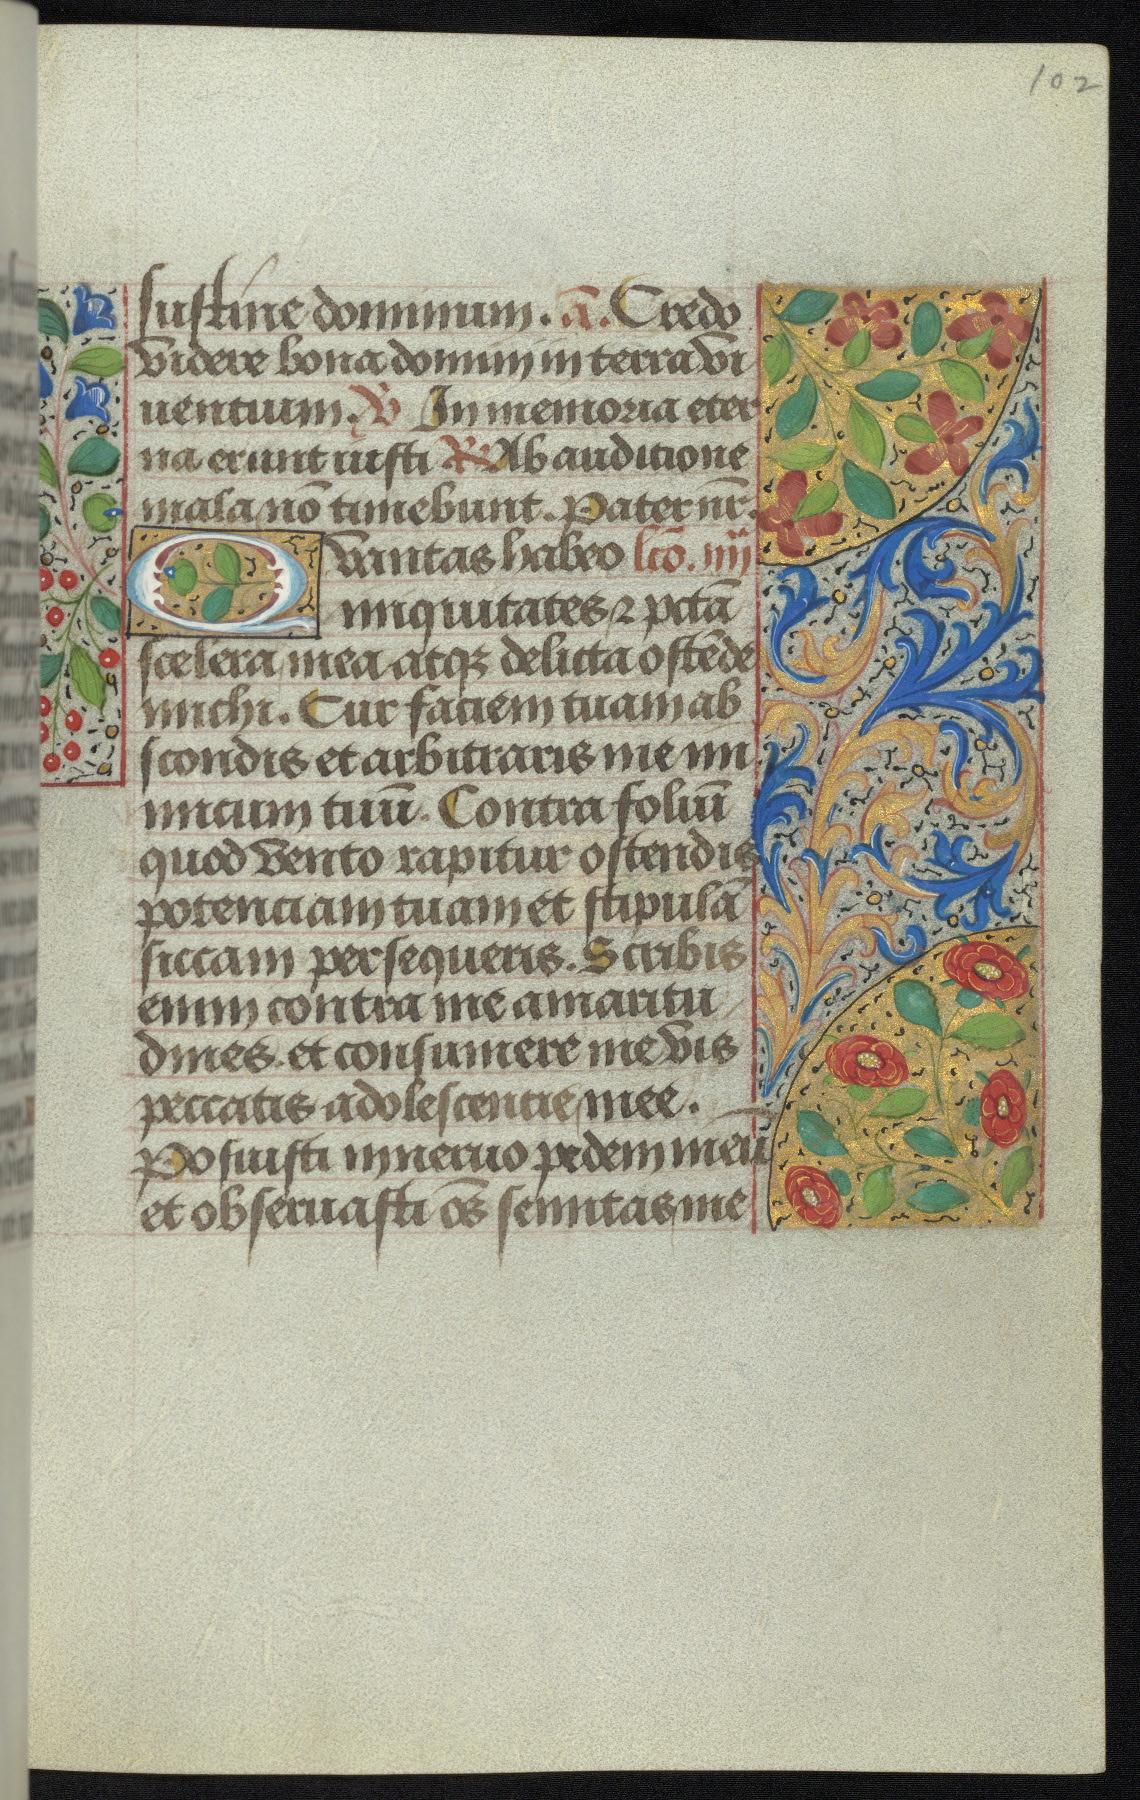 102
sustine dominum. a̅. Credo
videre bona domini in terra vi
uentium. V In memoria eter
na erunt iusti R Ab auditione
mala no̅ timebunt. Pater nr̅.
Quantas habeo lco̅. iiij
iniquitates ⁊ pcta̅
scelera mea atqꝫ delicta oste̅de
michi. Cur faciem tuam ab
scondis et arbitraris me ini
micum tuu̅. Contra foliu̅
quod vento rapitur ostendis
potenciam tuam et stipula̅
siccam persequeris. Scribis
enim contra me amaritu
dines. et consumere me vis
peccatis adolescentie mee.
Posuisti in neruo pedem meu̅
et obseruasti o̅s semitas me